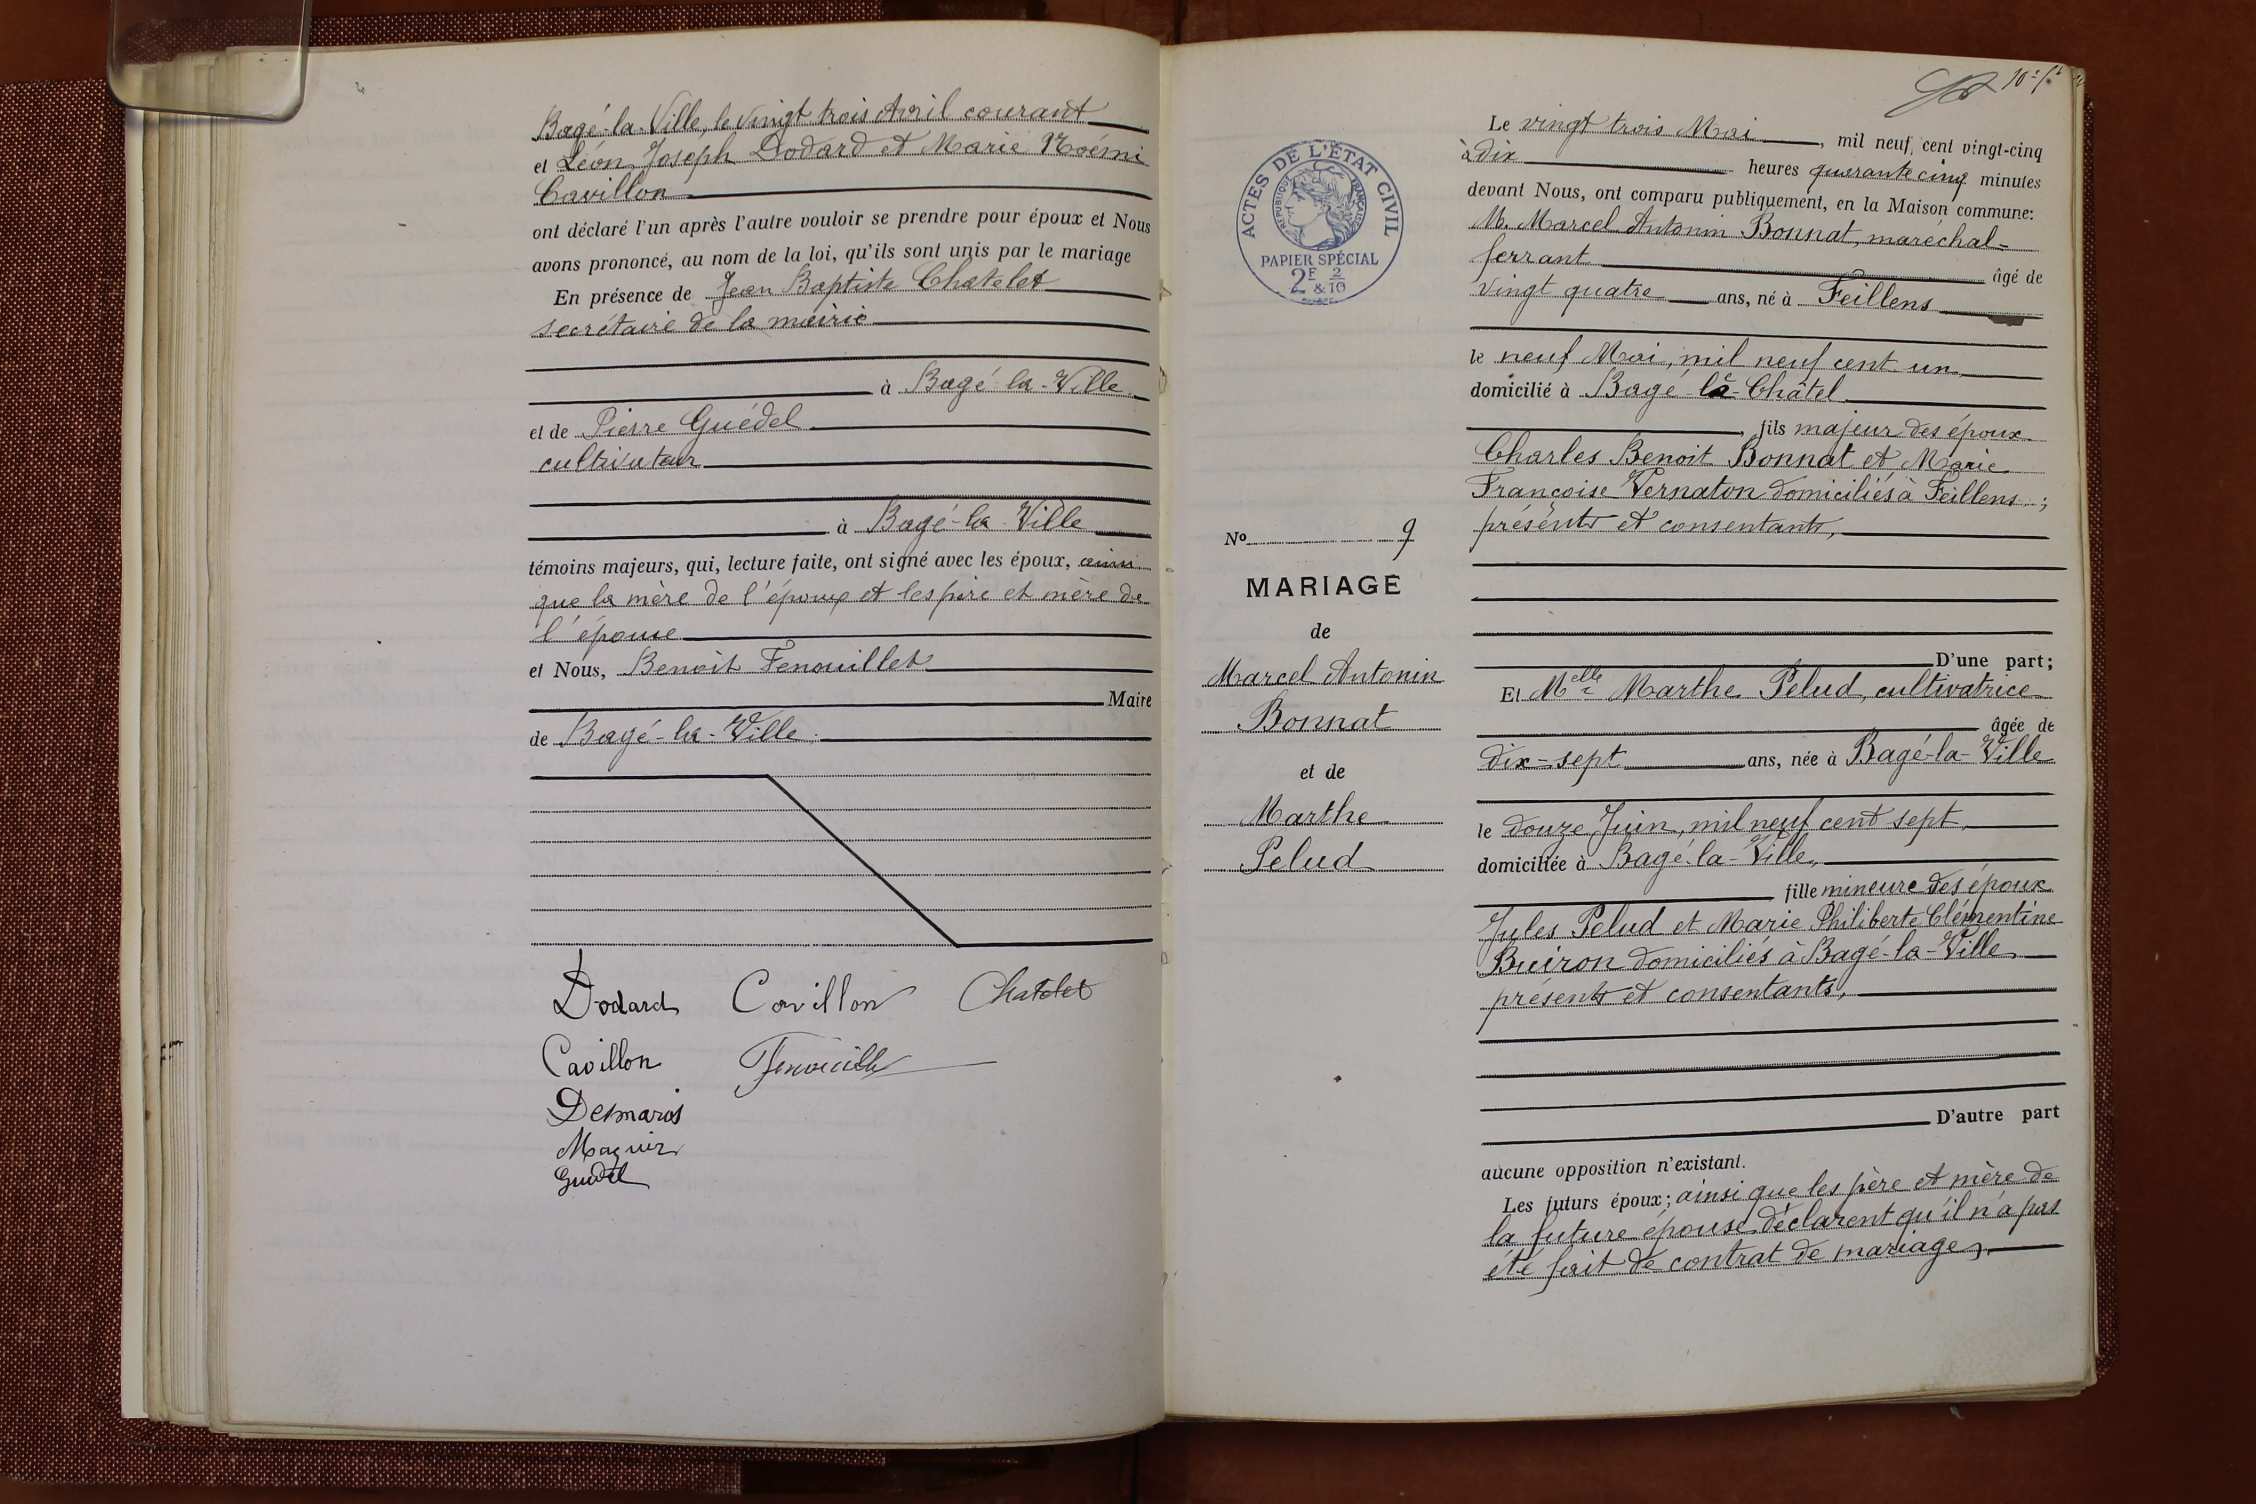 Bagé-la-Ville, le vingt trois Avril courant
et Léon Joseph Dodard et Marie Noémi
Cavillon
ont déclaré l'un après l'autre vouloir se prendre pour époux et Nous
avons prononcé, au nom de la loi, qu'ils sont unis par le mariage
En présence de Jean Baptiste Chatelet
secrétaire de la mairie
à Bagé-la-Ville.
et de Pierre Guédel
cultivateur
à Bagé-la-Ville
témoins majeurs, qui, lecture faite, ont signé avec les époux, ainsi
que la mère de l'époux et les père et mère de
l'épouse
et Nous, Benoit Fenouillet
Maire
de Bagé-la-Ville.
Dodard Cavillon Chatelet
Cavillon
Desmaris
Guédel
10e f.
Le vingt trois Mai, mil neuf cent vingt-cinq
à dix heures quarante cinq minutes
devant Nous, ont comparu publiquement, en la Maison commune:
M. Marcel Antonin Bonnat, maréchal-
ferrant âgé de
vingt quatre ans, né à Feillens
le neuf Mai, mil neuf cent un
domicilié à Bagé-le-Châtel
, fils majeur des époux
Charles Benoit Bonnat et Marie
Françoise Vernaton domiciliés à Feillens;
présents et consentants,
D'une part;
Et Melle Marthe Pelud, cultivatrice
âgée de
dix-sept ans, née à Bagé-la-Ville
le douze Juin, mil neuf cent sept,
domiciliée à Bagé-la-Ville,
fille mineure des époux
Jules Pelud et Marie Philiberte Clémentine
Buiron domiciliés à Bagé-la-Ville
présents et consentants,
D'autre part
aucune opposition n'existant.
Les futurs époux; ainsi que les père et mère de
la future épouse déclarent qu'il n'a pas
été fait de contrat de mariage,
ACTES DE L'ÉTAT CIVIL
RÉPUBLIQUE FRANÇAISE
PAPIER SPÉCIAL
2F 2/10
&
No 9
MARIAGE
de
Marcel Antonin
Bonnat
et de
Marthe
Pelud